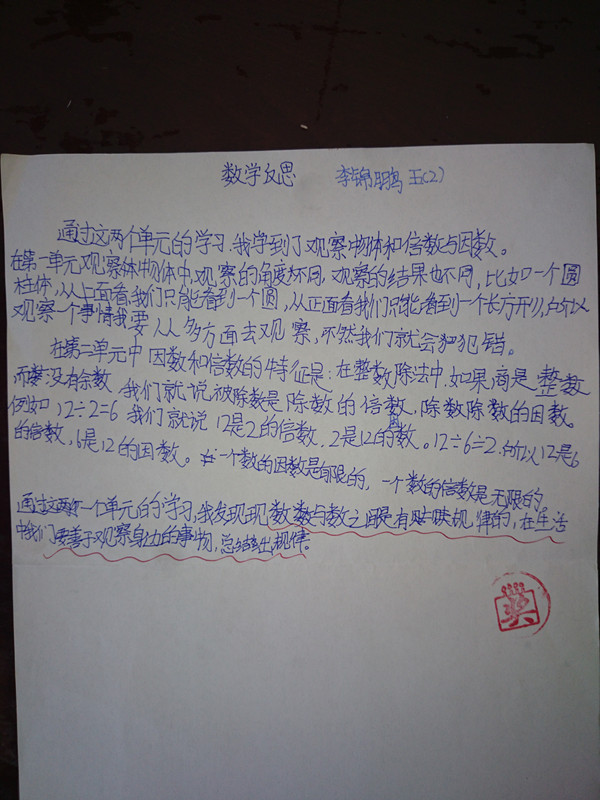 数学反思 李锦鹏 五(2)
通过这两个单元的学习,我学到了观察物体和倍数与因数。
在第一单元观察物体中,观察的角度不同,观察的结果也不同,比如一个圆
柱体,从上面看我们只能看到一个圆,从正面看我们只能看到一个长方形,所以
观察一个事情我要从多方面去观察,不然我们就会犯错。
在第二单元中因数和倍数的特征是:在整数除法中,如果商是整数
而没有余数,我们就说被除数是除数的倍数,除数除数的因数。
例如12÷2=6 我们就说12是2的倍数,2是12的因数。12÷6=2,所以12是6
的倍数,6是12的因数。一个数的因数是有限的,一个数的倍数是无限的。
通过这两个单元的学习,我发现数与数之间是有规律的,在生活
中我们要善于观察身边的事物,总结出规律。
奖